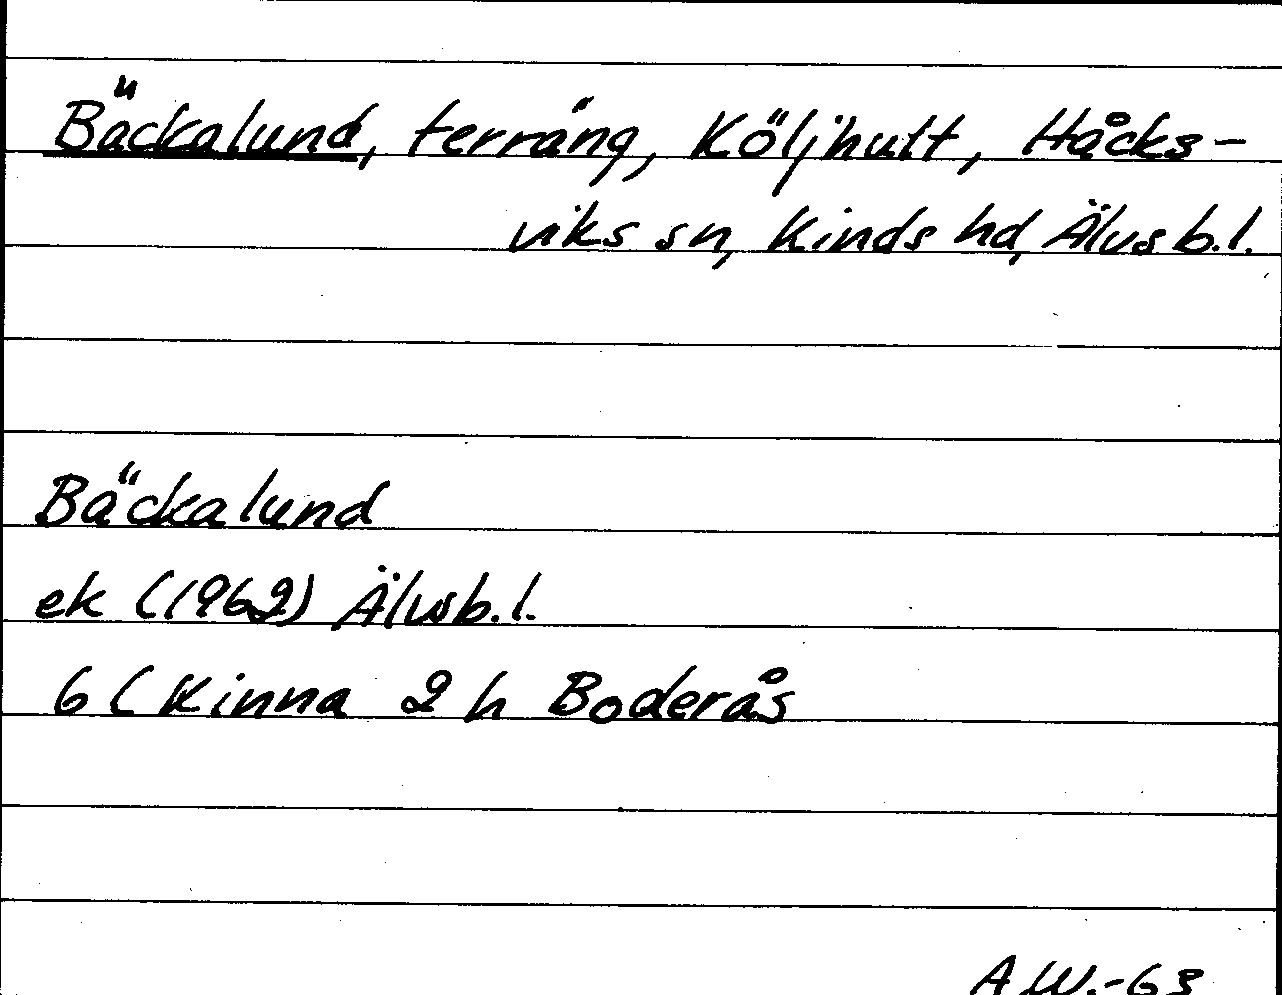 Bäckalund, terräng, Köljhult, Håcks-
viks sn, Kinds hd, Älvsb.l.
Bäckalund
ek (1962) Älvsb.l.
6 C Kinna 2 h Boderås
A.W.-63